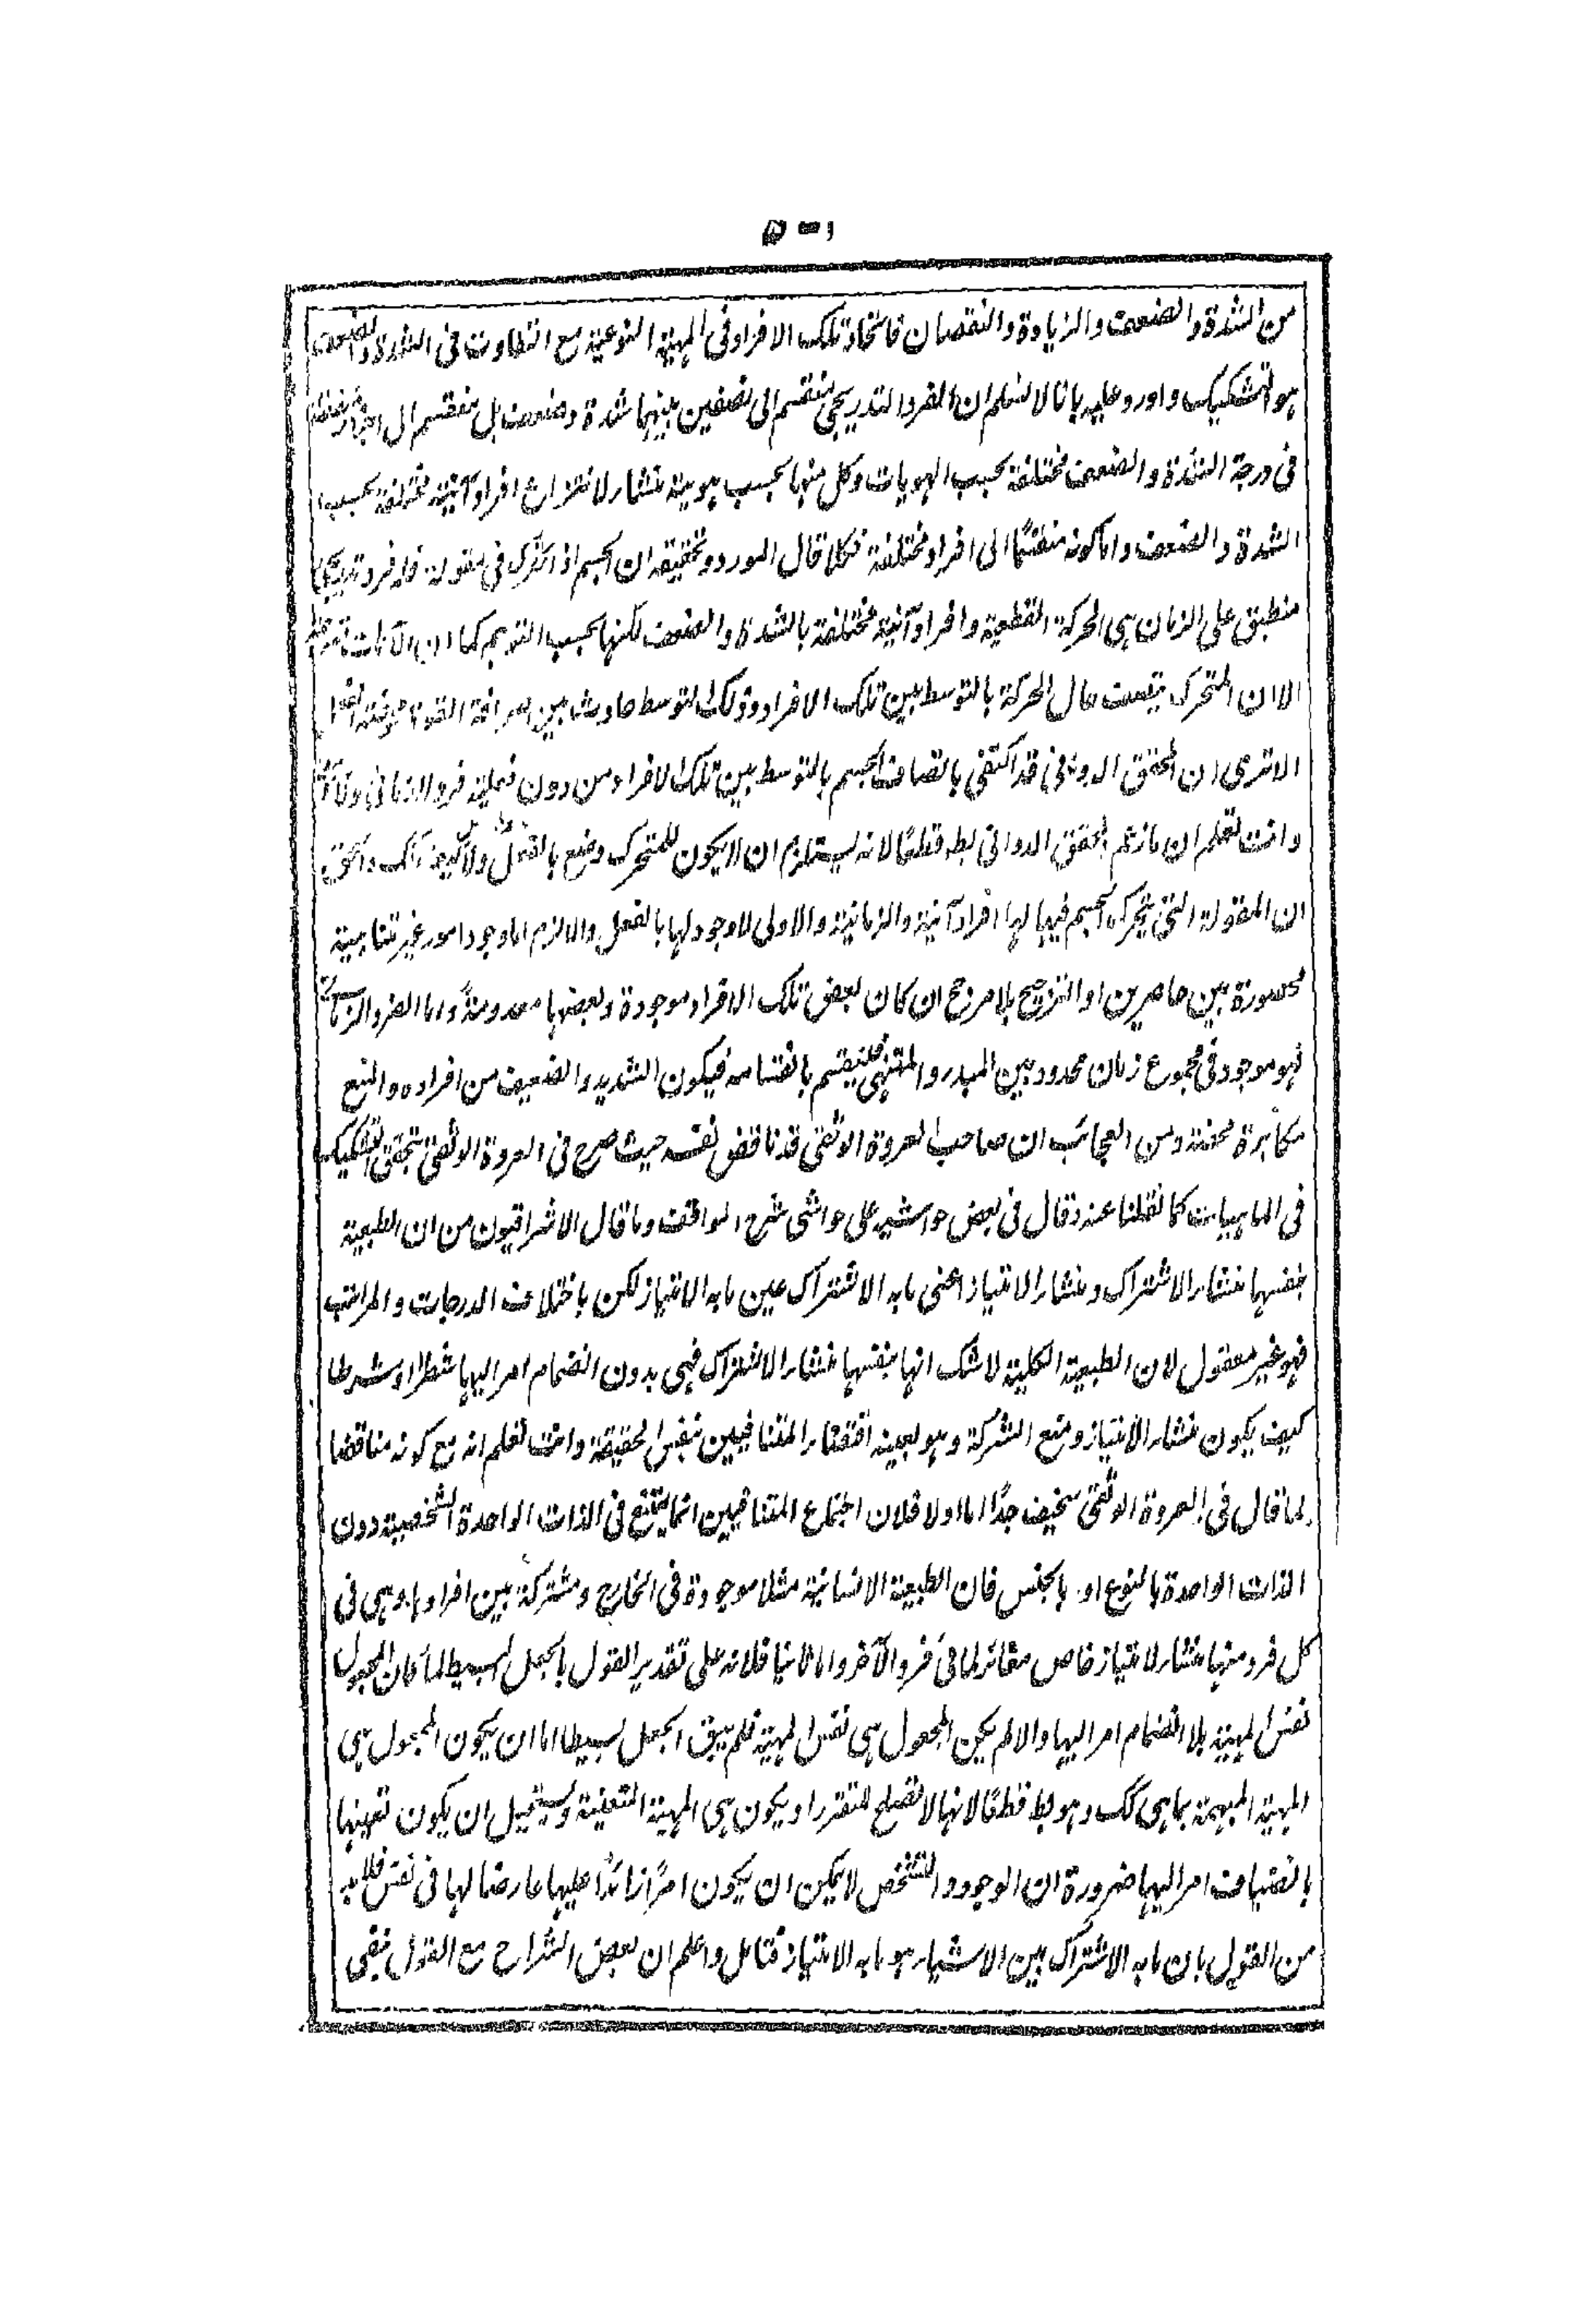 ١٥٠
من الشدة والضعف والزيادة والنقصان فاتحاد تلك الافراد فى المهية النوعية مع التفاوت فى الشدة والضعف
هو التشكيك واورد عليه بانا لا نسلم ان الفرد التدريجى ينقسم الى نصفين بينهما شدة وضعف بل ينقسم الى
فى درجة الشدة والضعف مختلفة بحسب الهويات وكل منها بحسب هويته منشأ لانتزاع افراد آنية مختلفة بحسب
الشدة والضعف واما كونه منقسما الى افراد مختلفة فكلا قال المورد وتحقيقه ان الجسم اذا تحرك فى مقولة فله فرد تدريجى
منطبق على الزمان هى الحركة القطعية وافراد آنية مختلفة بالشدة والضعف لكنها بحسب التوهم كما ان الآنات
الا ان المتحرك يتصف حال الحركة بالتوسط بين تلك الافراد وذلك التوسط حادث بين صرافة القوة
الا ترى ان المحقق الدوانى قد اكتفى باتصاف الجسم بالتوسط بين تلك الافراد من دون فعلية فرد الزمانى
وانت تعلم ان ما زعم المحقق الدوانى بط قطعًا لانه يستلزم ان لا يكون للمتحرك وضع بالفعل ولا كيف
ان المقولة التى يتحرك الجسم فيها لها افراد آنية والزمانية والاولى لا وجود لها بالفعل والا لزم اما وجود امور غير متناهية
محصورة بين حاصرين او الترجيح بلا مرجح ان كان بعض تلك الافراد موجودة وبعضها معدومة واما الفرد الزمانى
فهو موجود فى مجموع زمان محدود بين المبدء والمنتهى فلينقسم بانقسامه فيكون الشديد والضعيف من افراده والمنع
مكابرة محضة ومن العجائب ان صاحب العروة الوثقى قد ناقض نفسه حيث صرح فى العروة الوثقى بتحقق التشكيك
فى الماهيات كما نقلنا عنه وقال فى بعض حواشيه على حواشى شرح المواقف وما قال الاشراقيون من ان الطبعية
بنفسها منشأ الاشتراك ومنشأ الامتياز اعنى ما به الاشتراك عين ما به الامتياز لكن باختلاف الدرجات والمراتب
فهو غير معقول لان الطبيعة الكلية لا شك انها بنفسها منشأ الاشتراك فهى بدون انضمام امر اليها شطرا او شرطا
كيف يكون منشأ الامتياز ومنع الشركة وهو بعينه اقتضاء المتنافيين بنفس الحقيقة وانت تعلم انه مع كونه مناقضا
لما قال فى العروة الوثقى سخيف جدًا اما اولا فلان اجتماع المتنافيين انما يمتنع فى الذات الواحدة الشخصية دون
الذات الواحدة بالنوع او بالجنس فان الطبيعة الانسانية مثلا موجودة فى الخارج ومشتركة بين افرادها وهى فى
كل فرد منها منشأ لامتياز خاص مغائر لما فى فرد الآخر واما ثانيا فلانه على تقدير القول بالجعل البسيط لما كان المجعول
نفس المهية بلا انضمام امر اليها والا لم يكن المجعول هى نفس المهية فلم يبق الجعل بسيطا اما ان يكون المجعول هى
المهية المبهمة بما هى كك وهو بط قطعًا لانها لا تصلح للتقرر او يكون هى المهية المتعينة ويستحيل ان يكون تعينها
بانضياف امر اليها ضرورة ان الوجود والتشخص لا يمكن ان يكون امرًا زائدًا عليها عارضا لها فى نفس فلا بد
من القول بان ما به الاشتراك بين الاشياء هو ما به الامتياز فتامل واعلم ان بعض الشراح مع القول بنفى